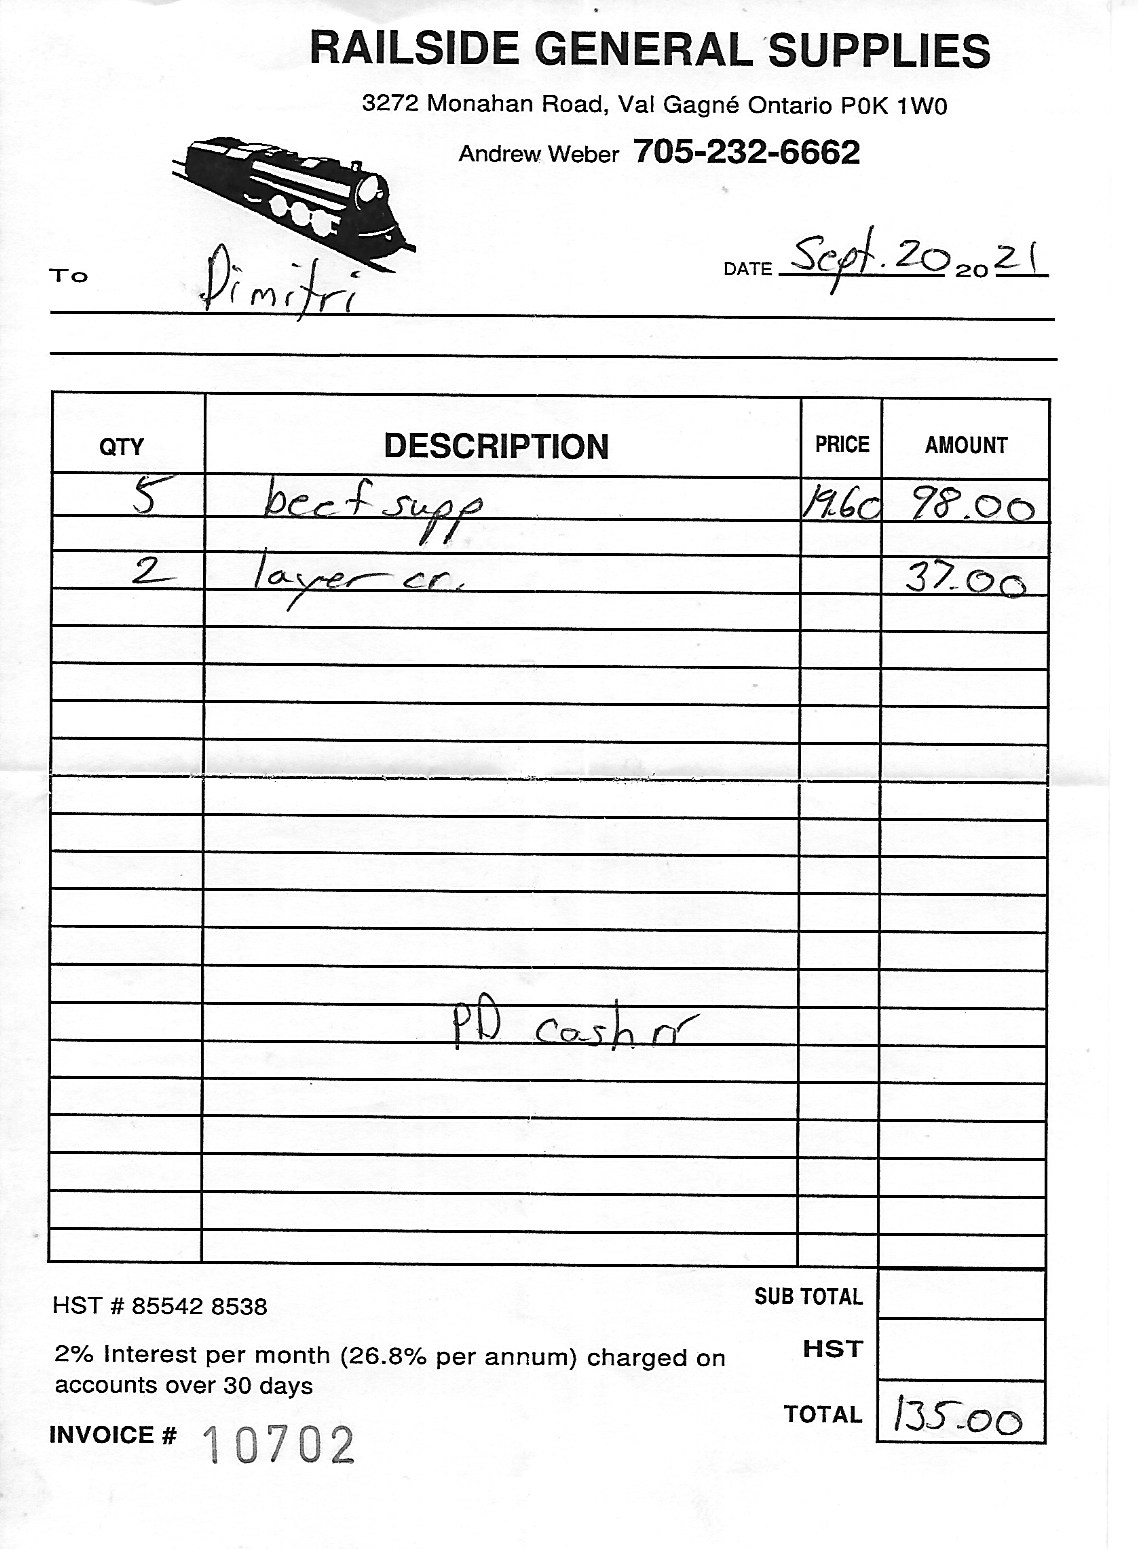 RAILSIDE GENERAL SUPPLIES
3272 Monahan Road, Val Gagné Ontario P0K 1W0
Andrew Weber 705-232-6662
TO Dimitri
DATE Sept. 20 2021
QTY DESCRIPTION PRICE AMOUNT
5 beef supp 19.60 98.00
2 layer cr. 37.00
PD cash
SUB TOTAL
HST # 85542 8538
HST
2% Interest per month (26.8% per annum) charged on
accounts over 30 days
TOTAL 135.00
INVOICE # 10702